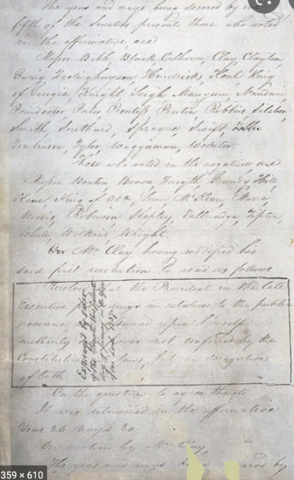 The yeas and nays being desired by one
fifth of the Senators present, those who voted
in the affirmative, are
Messrs Bibb, Black, Calhoun, Clay, Clayton
Ewing, Frelinghuysen, Hendricks, Kent, King
of Georgia, Knight, Leigh, Mangum, Naudain
Poindexter, Porter, Prentiss, Preston, Robbins, Silsbee
Smith, Southard, Sprague, Swift,
Tomlinson, Tyler, Waggaman, Webster.
Those who voted in the negative are
Messrs Benton, Brown, Forsyth, Grundy, Hill
Kane, King of Ala, Linn, McKean, Moore,
Morris, Robinson, Shepley, Tallmadge, Tipton
White, Wilkins, Wright.
Mr. Clay having modified his
said first resolution to read as follows
Resolved, that the President in the late
Executive proceedings in relation to the public
revenue, assumed upon himself
authority and power not conferred by the
Constitution and laws, but in derogation
of both
Expunged by order
of the Senate
On the question to agree thereto
It was determined in the affirmative
Yeas 26 nays 20.
On motion by Mr. Clay,
The yeas and nays being desired by
359 × 610